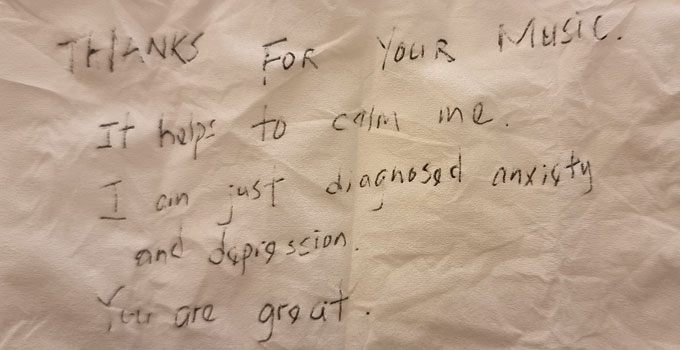 THANKS FOR YOUR MUSIC.
It helps to calm me.
I am just diagnosed anxiety
and depression.
You are great.